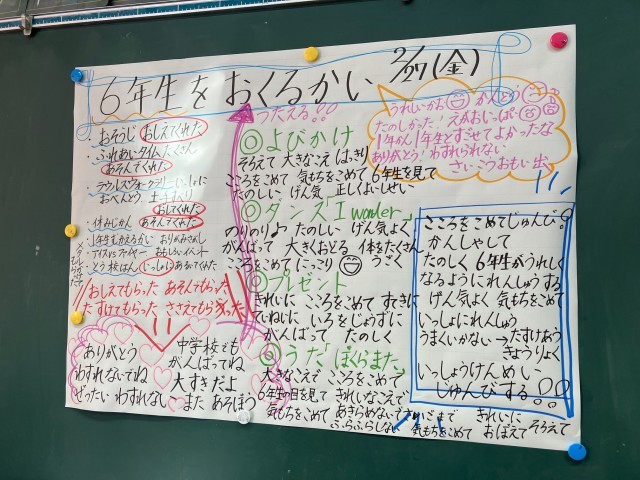 6年生をおくるかい 2/27(金)
・おそうじ おしえてくれた
・ふれあいタイム たくさん
あそんでくれた
・ウォークラリー いっしょに
おべんとう
おしてくれた
・休みじかん あそんでくれた
・1年生むかえるかい
・アイスVSファイヤー おもしろいイベント
・とう校はん いっしょにあるいてくれた
おしえてもらった あそんもらった
たすけてもらった ささえてもらった
ありがとう
わすれないでね
ぜったい わすれない
中学校でも
がんばってね
大すきだよ
また あそぼう
うたえる!!
◎よびかけ
そろえて 大きなこえ はっきり
こころをこめて 気もちをこめて 6年生を見て
たのしい げん気 正しくよいしせい
◎ダンス「I wonder」
のりのりよ たのしい げん気よく
がんばって 大きくおどる 体をたくさん
こころをこめて にっこり うごく
◎プレゼント
きれいに こころをこめて すきに
ていねいに いろをじょうずに
がんばって たのしく
◎うた「ほらまた」
大きなこえで こころをこめて
6年生の目を見て きれいなこえで
気もちをこめて あきらめないで さいごまで きれいに
ふらふらしない 気もちをこめて おぼえて そろえて
うれしいかお かんどう
たのしかった! えがおいっぱい
1年かん 1年生とすごせてよかったな
ありがとう! わすれられない
さいこう おもい出
こころをこめてじゅんび!
かんしゃして
たのしく 6年生がうれしく
なるようにれんしゅうする
げん気よく 気もちをこめて
いっしょにれんしゅう
うまくいかない→たすけあう
きょうりょく
いっしょうけんめい
じゅんびする!!